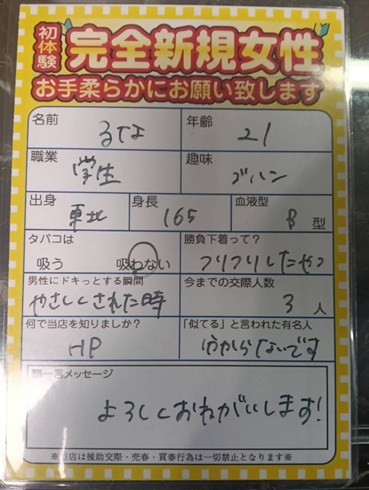 初体験
完全新規女性
お手柔らかにお願い致します
名前 るな 年齢 21
職業 学生 趣味 ゴハン
出身 東北 身長 165 血液型 B 型
タバコは 吸う 吸わない
勝負下着って? フリフリしたやつ
男性にドキっとする瞬間 やさしくされた時
今までの交際人数 3 人
何で当店を知りましたか? HP
「似てる」と言われた有名人 わからないです
一言メッセージ
よろしくおねがいします!
※当店は援助交際・売春・買春行為は一切禁止となります※